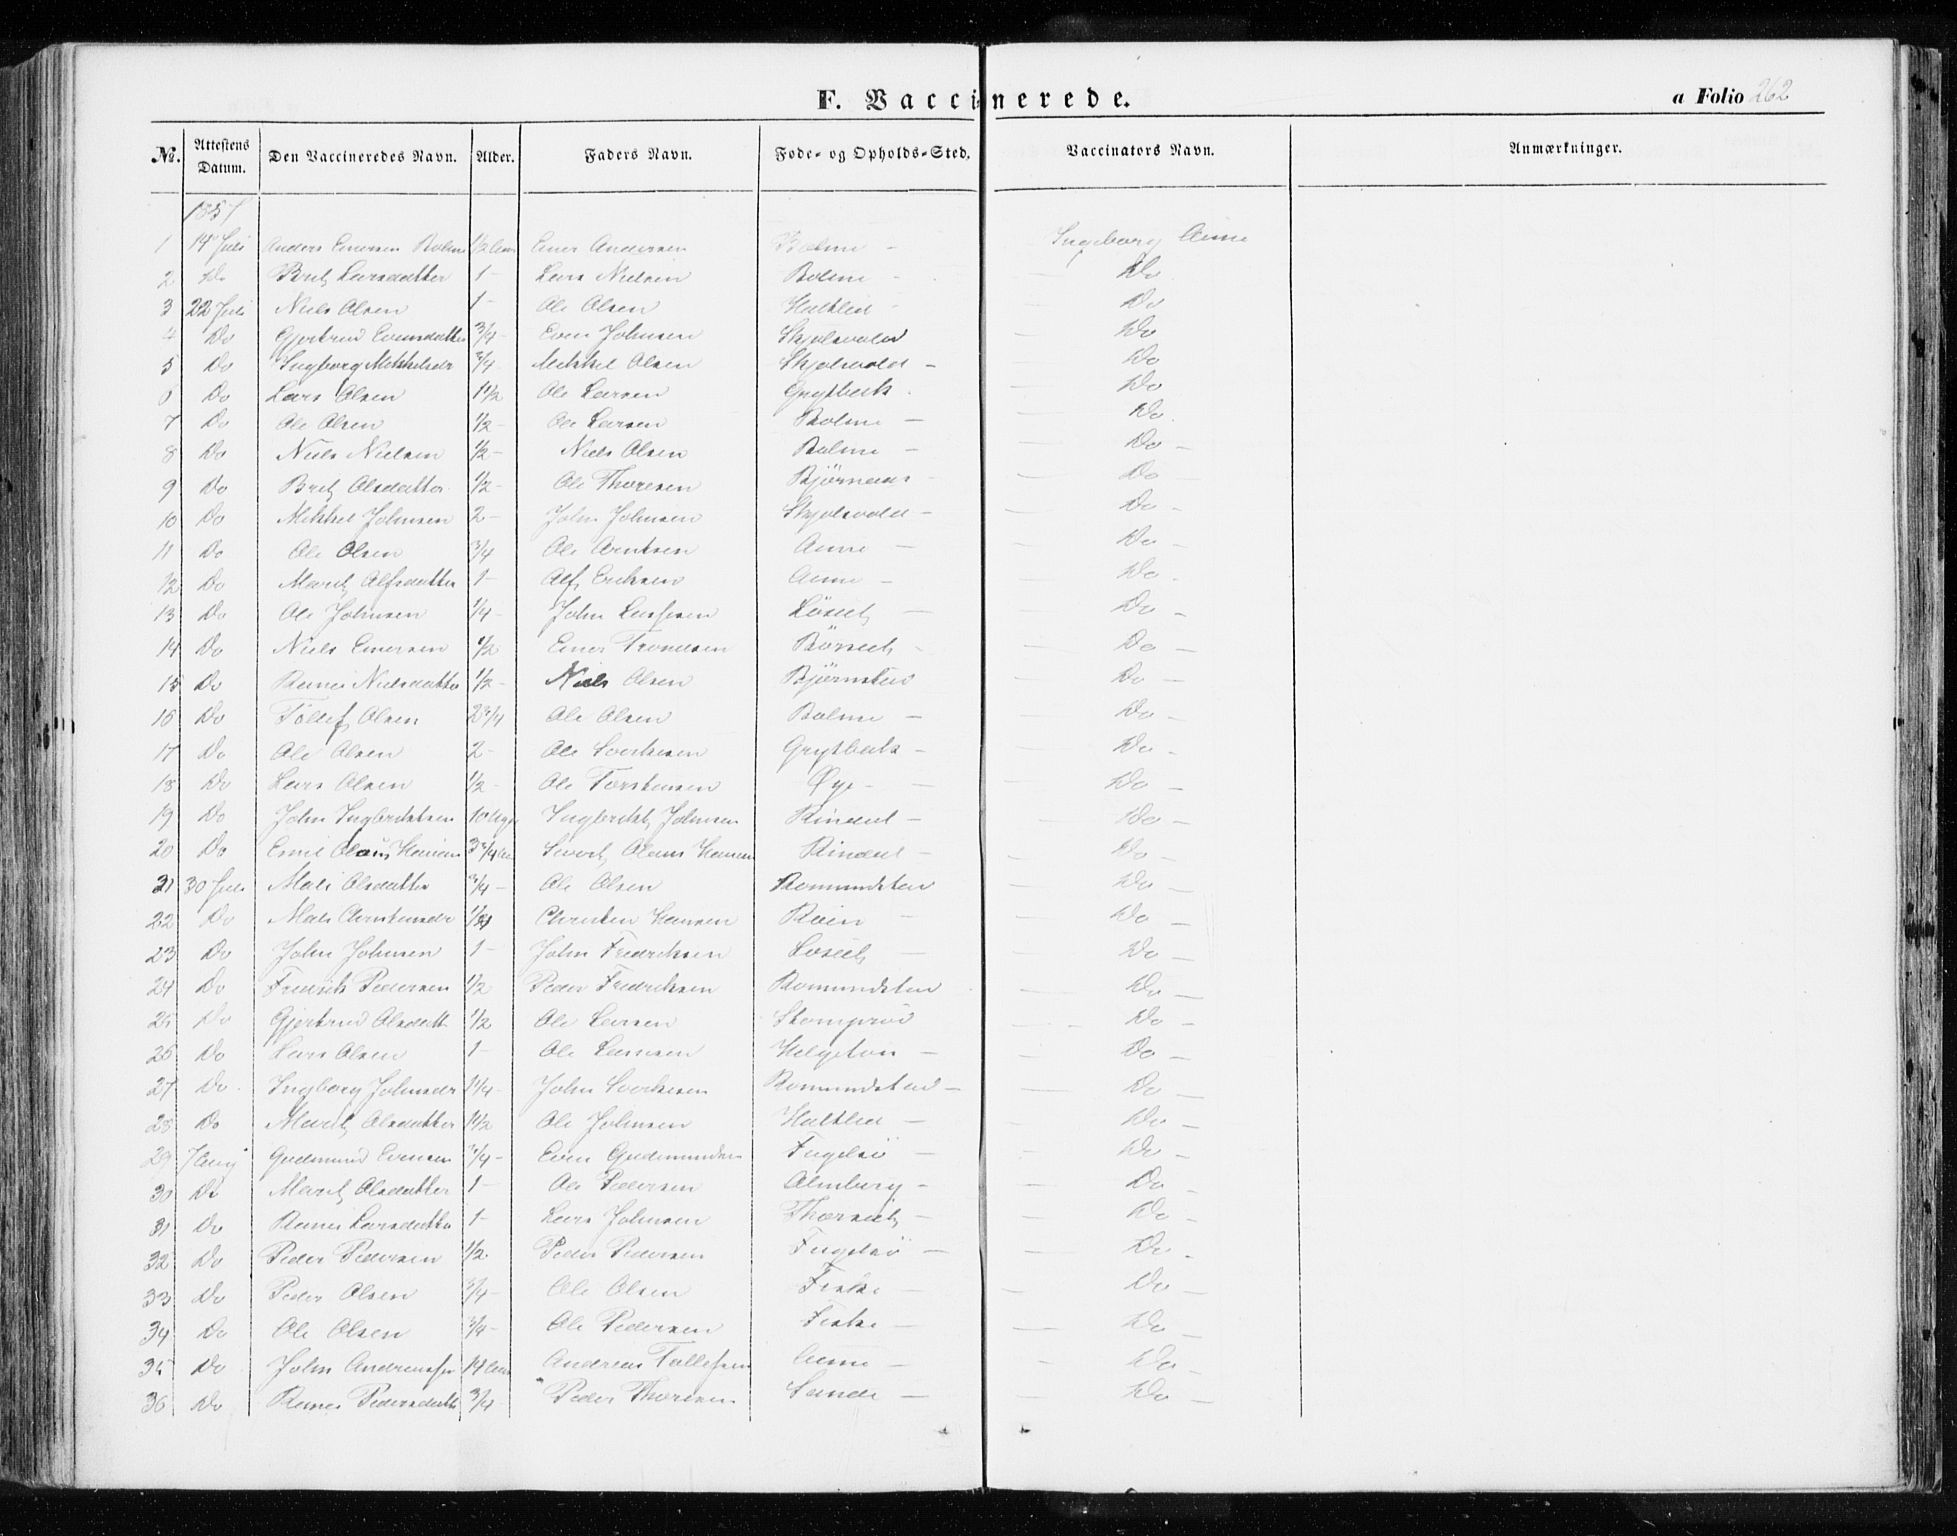 F. Vaccinerede.
a Folio 262
No. Attestens Datum. Den Vaccineredes Navn. Alder. Faders Navn. Føde- og Opholds-Sted. Vaccinators Navn. Anmærkninger.
1857
1 14 Juli Anders Enersen Bolme 1/2 Ener Andersen Bolme - Ingeborg Aune
2 Do Brit Larsdatter 1 - Lars Nielsen Bolme - - Do
3 22 Juli Niels Olsen 1 - Ole Olsen Haltlid - Do
4 Do Gjertrud Evensdatter 3/4 - Even Johnsen Skjølsvold - Do
5 Do Ingborg Mikkelsdr 3/4 Mikkel Olsen Skjølsvold - - Do
6 Do Lars Olsen 1 1/2 Ole Larsen Grytbæk - Do
7 Do Ole Olsen 1/2 - Ole Larsen Bolme - Do
8 Do Niels Nielsen 1/2 - Niels Olsen Bolme - - Do -
9 Do Brit Olsdatter 1/2 - Ole Thoresen Bjørnaas - - Do
10 Do Mikkel Johnsen 2 - John Johnsen Skjølsvold - - Do -
11 Do Ole Olsen 3/4 Ole Arntsen Aune - - Do -
12 Do Marit Alfsdatter 1 - Alf Eriksen Aune - - Do
13 Do Ole Johnsen 1/4 - John Løseth - - Do -
14 Do Niels Enersen 1/2 Ener Trondsen Børseth - - Do -
15 Do Ranes Nielsdatter 1/2 - Niels Olsen Bjørnsted - Do -
16 Do Tollef Olsen 2 3/4 Ole Olsen Bolme - - Do -
17 Do Ole Olsen 2 - Ole Sverkesen Grytbæk - - Do -
18 Do Lars Olsen 1/2 - Ole Torstensen Øye - - Do -
19 Do John Ingbriktsen 10 Uger Ingbrikt Johnsen Rindal - - Do -
20 Do Emil Olaus Hansen 3 3/4 Sivert Olaus Hansen Rindal - - Do -
21 30 Juli Mali Olsdatter 3/4 - Ole Olsen Romundstad - Do -
22 Do Mali Christensdr Christen Hansen Røen - - Do -
23 Do John Johnsen 1 - John Fredriksen Løseth - - Do -
24 Do Fredrik Pedersen 1/2 Peder Fredriksen Romundstad - Do -
25 Do Gjertrud Olsdatt 1/2 Ole Larsen - Do -
26 Do Lars Olsen 1 - Ole Larsen Helgeton - - Do -
27 Do Ingborg Johnsdr 1 1/4 - John Sverkesen Romundstad - - Do -
28 Do Marit Olsdatter 1 1/2 Ole Johnsen Haltlid - - Do -
29 7 Aug Gudmund Evensen 3/4 - Even Gudmundsen Fugelsø - - Do -
30 Do Marit Olsdatter 1 - Ole Pedersen Almberg - - Do -
31 Do Ranes Larsdatter 1 - Lars Johnsen Thorseth - - Do -
32 Do Peder Pedersen 1/2 Peder Pedersen Fugelsø - - Do -
33 Do Peder Olsen 3/4 - Ole Olsen Fiske - - Do -
34 Do Ole Olsen 3/4 - Ole Pedersen Fiske - - Do -
35 Do John Andreassen 14 Andreas Tollefsen Aune - - Do -
36 Do Ranes Pedersdatt 3/4 - Peder Thoresen Sande - - Do -